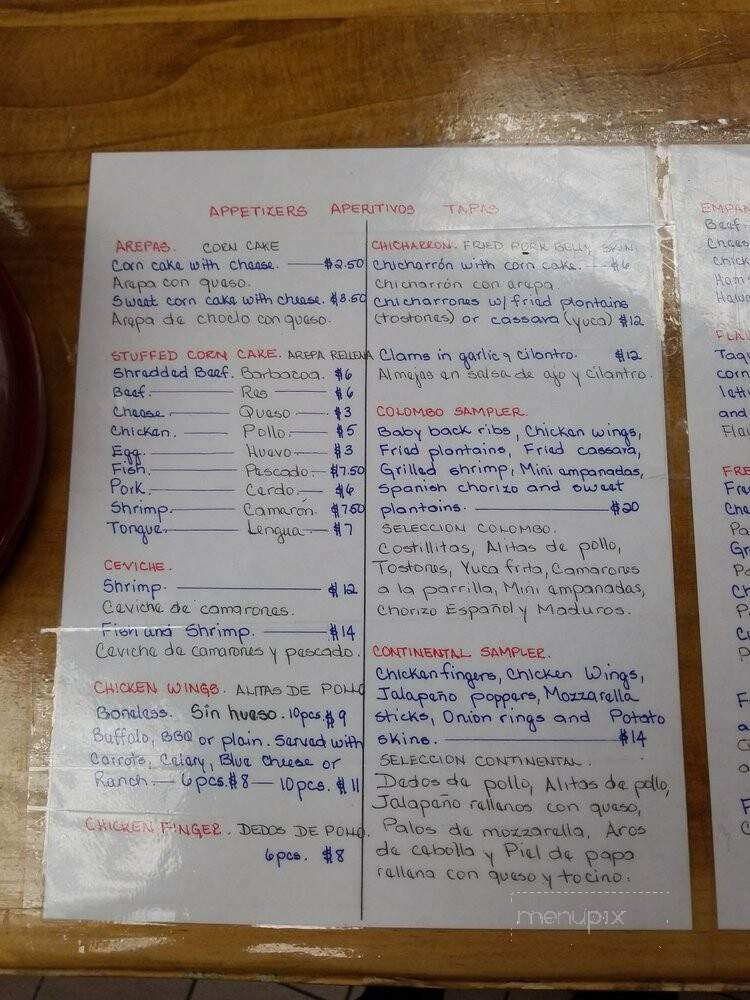 APPETIZERS APERITIVOS TAPAS
AREPAS. CORN CAKE
Corn cake with cheese. $2.50
Arepa con queso.
Sweet corn cake with cheese. $3.50
Arepa de choclo con queso.
STUFFED CORN CAKE. AREPA RELLENA
Shredded Beef. Barbacoa. $6
Beef. Res $6
Cheese Queso $3
Chicken. Pollo. $5
Egg. Huevo. $3
Fish. Pescado. $7.50
Pork. Cerdo. $6
Shrimp. Camarón. $7.50
Tongue. Lengua. $7
CEVICHE.
Shrimp. $12
Ceviche de camarones.
Fish and Shrimp. $14
Ceviche de camarones y pescado.
CHICKEN WINGS. ALITAS DE POLLO
Boneless. Sin hueso. 10pcs. $9
Buffalo, BBQ or plain. Served with
Carrots, Celery, Blue Cheese or
Ranch. 6pcs. $8 10pcs. $11
CHICKEN FINGER. DEDOS DE POLLO.
6pcs. $8
CHICHARRON. FRIED PORK BELLY SKIN
Chicharrón with corn cake. $6
Chicharrón con arepa.
Chicharrones w/ fried plantains
(tostones) or cassava (yuca) $12
Clams in garlic & cilantro. $12
Almejas en salsa de ajo y cilantro.
COLOMBO SAMPLER.
Baby back ribs, Chicken wings,
Fried plantains, Fried cassava,
Grilled shrimp, Mini empanadas,
Spanish chorizo and sweet
plantains. $20
SELECCION COLOMBO.
Costillitas, Alitas de pollo,
Tostones, Yuca frita, Camarones
a la parrilla, Mini empanadas,
Chorizo Español y Maduros.
CONTINENTAL SAMPLER.
Chicken fingers, Chicken Wings,
Jalapeño poppers, Mozzarella
sticks, Onion rings and Potato
skins. $14
SELECCION CONTINENTAL.
Dedos de pollo, Alitas de pollo,
Jalapeño rellenos con queso,
Palos de mozzarella, Aros
de cebolla y Piel de papa
rellena con queso y tocino.
menupix
Beef.